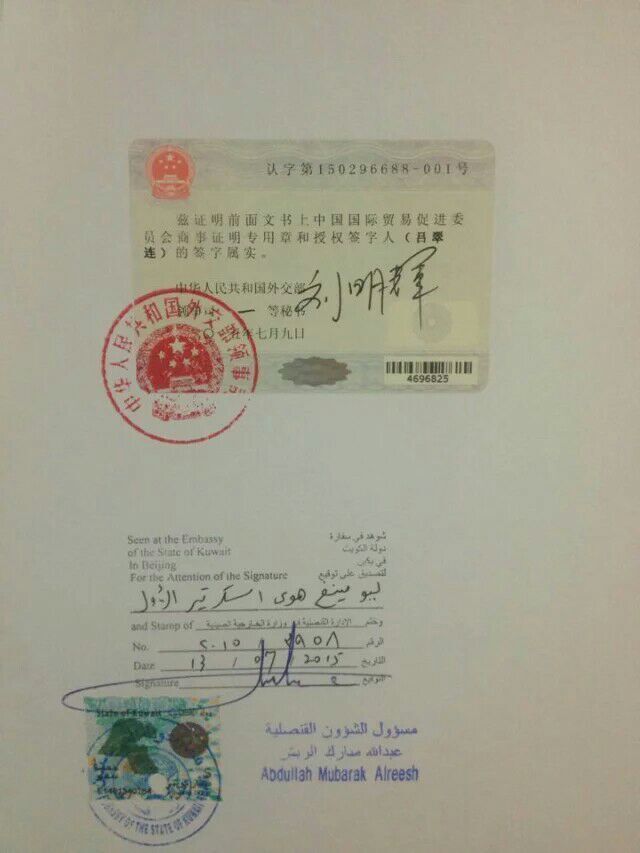 认字第150296688-001号
兹证明前面文书上中国国际贸易促进委
员会商事证明专用章和授权签字人（吕翠
连）的签字属实。
中华人民共和国外交部
一等秘书
刘明辉
年七月九日
中华人民共和国外交部领事司
4696825
Seen at the Embassy
of the State of Kuwait
In Beijing
For the Attention of the Signature
شوهد في سفارة
دولة الكويت
في بكين
لتصديق على توقيع
ليو مينغ هوى
and Stamp of الإدارة القنصلية في وزارة الخارجية الصينية وختم
No. ٢٠١٥ / ٣٩٥٨ الرقم
Date 13 / 07 / 2015 التاريخ
Signature التوقيع
State of Kuwait
EMBASSY OF THE STATE OF KUWAIT
مسؤول الشؤون القنصلية
عبدالله مبارك الريش
Abdullah Mubarak Alreesh